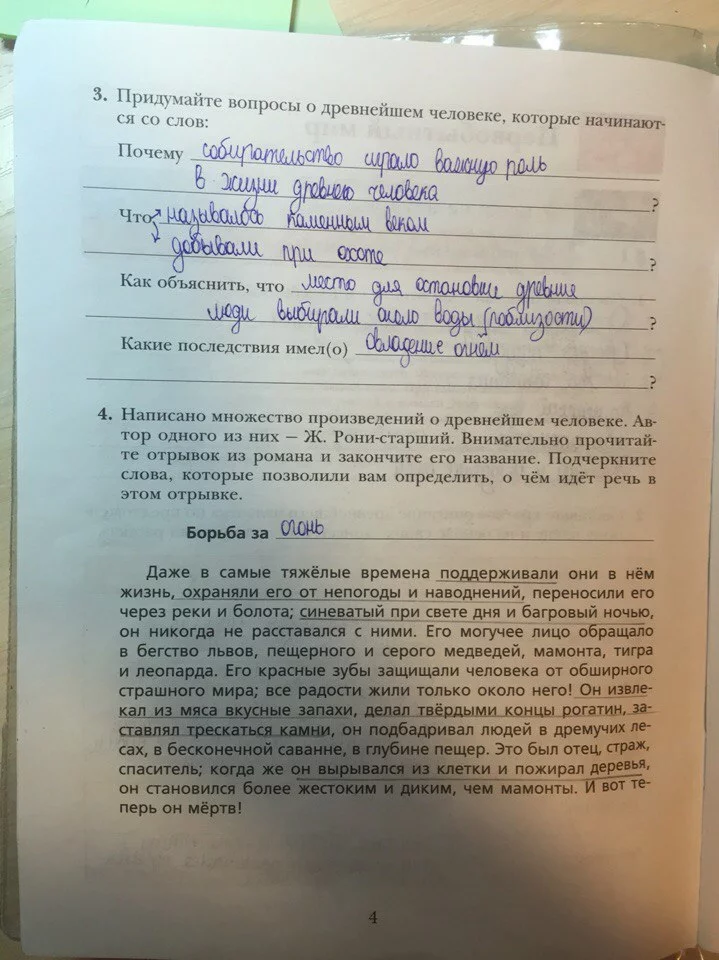 3. Придумайте вопросы о древнейшем человеке, которые начинают-
ся со слов:
Почему собирательство играло важную роль
в жизни древнего человека ?
Что называлось каменным веком
добывали при охоте ?
Как объяснить, что место для остановке древние
люди выбирали около воды (поблизости) ?
Какие последствия имел(о) овладение огнём
?
4. Написано множество произведений о древнейшем человеке. Ав-
тор одного из них – Ж. Рони-старший. Внимательно прочитай-
те отрывок из романа и закончите его название. Подчеркните
слова, которые позволили вам определить, о чём идёт речь в
этом отрывке.
Борьба за огонь
Даже в самые тяжёлые времена поддерживали они в нём
жизнь, охраняли его от непогоды и наводнений, переносили его
через реки и болота; синеватый при свете дня и багровый ночью,
он никогда не расставался с ними. Его могучее лицо обращало
в бегство львов, пещерного и серого медведей, мамонта, тигра
и леопарда. Его красные зубы защищали человека от обширного
страшного мира; все радости жили только около него! Он извле-
кал из мяса вкусные запахи, делал твёрдыми концы рогатин, за-
ставлял трескаться камни, он подбадривал людей в дремучих ле-
сах, в бесконечной саванне, в глубине пещер. Это был отец, страж,
спаситель; когда же он вырывался из клетки и пожирал деревья,
он становился более жестоким и диким, чем мамонты. И вот те-
перь он мёртв!
4